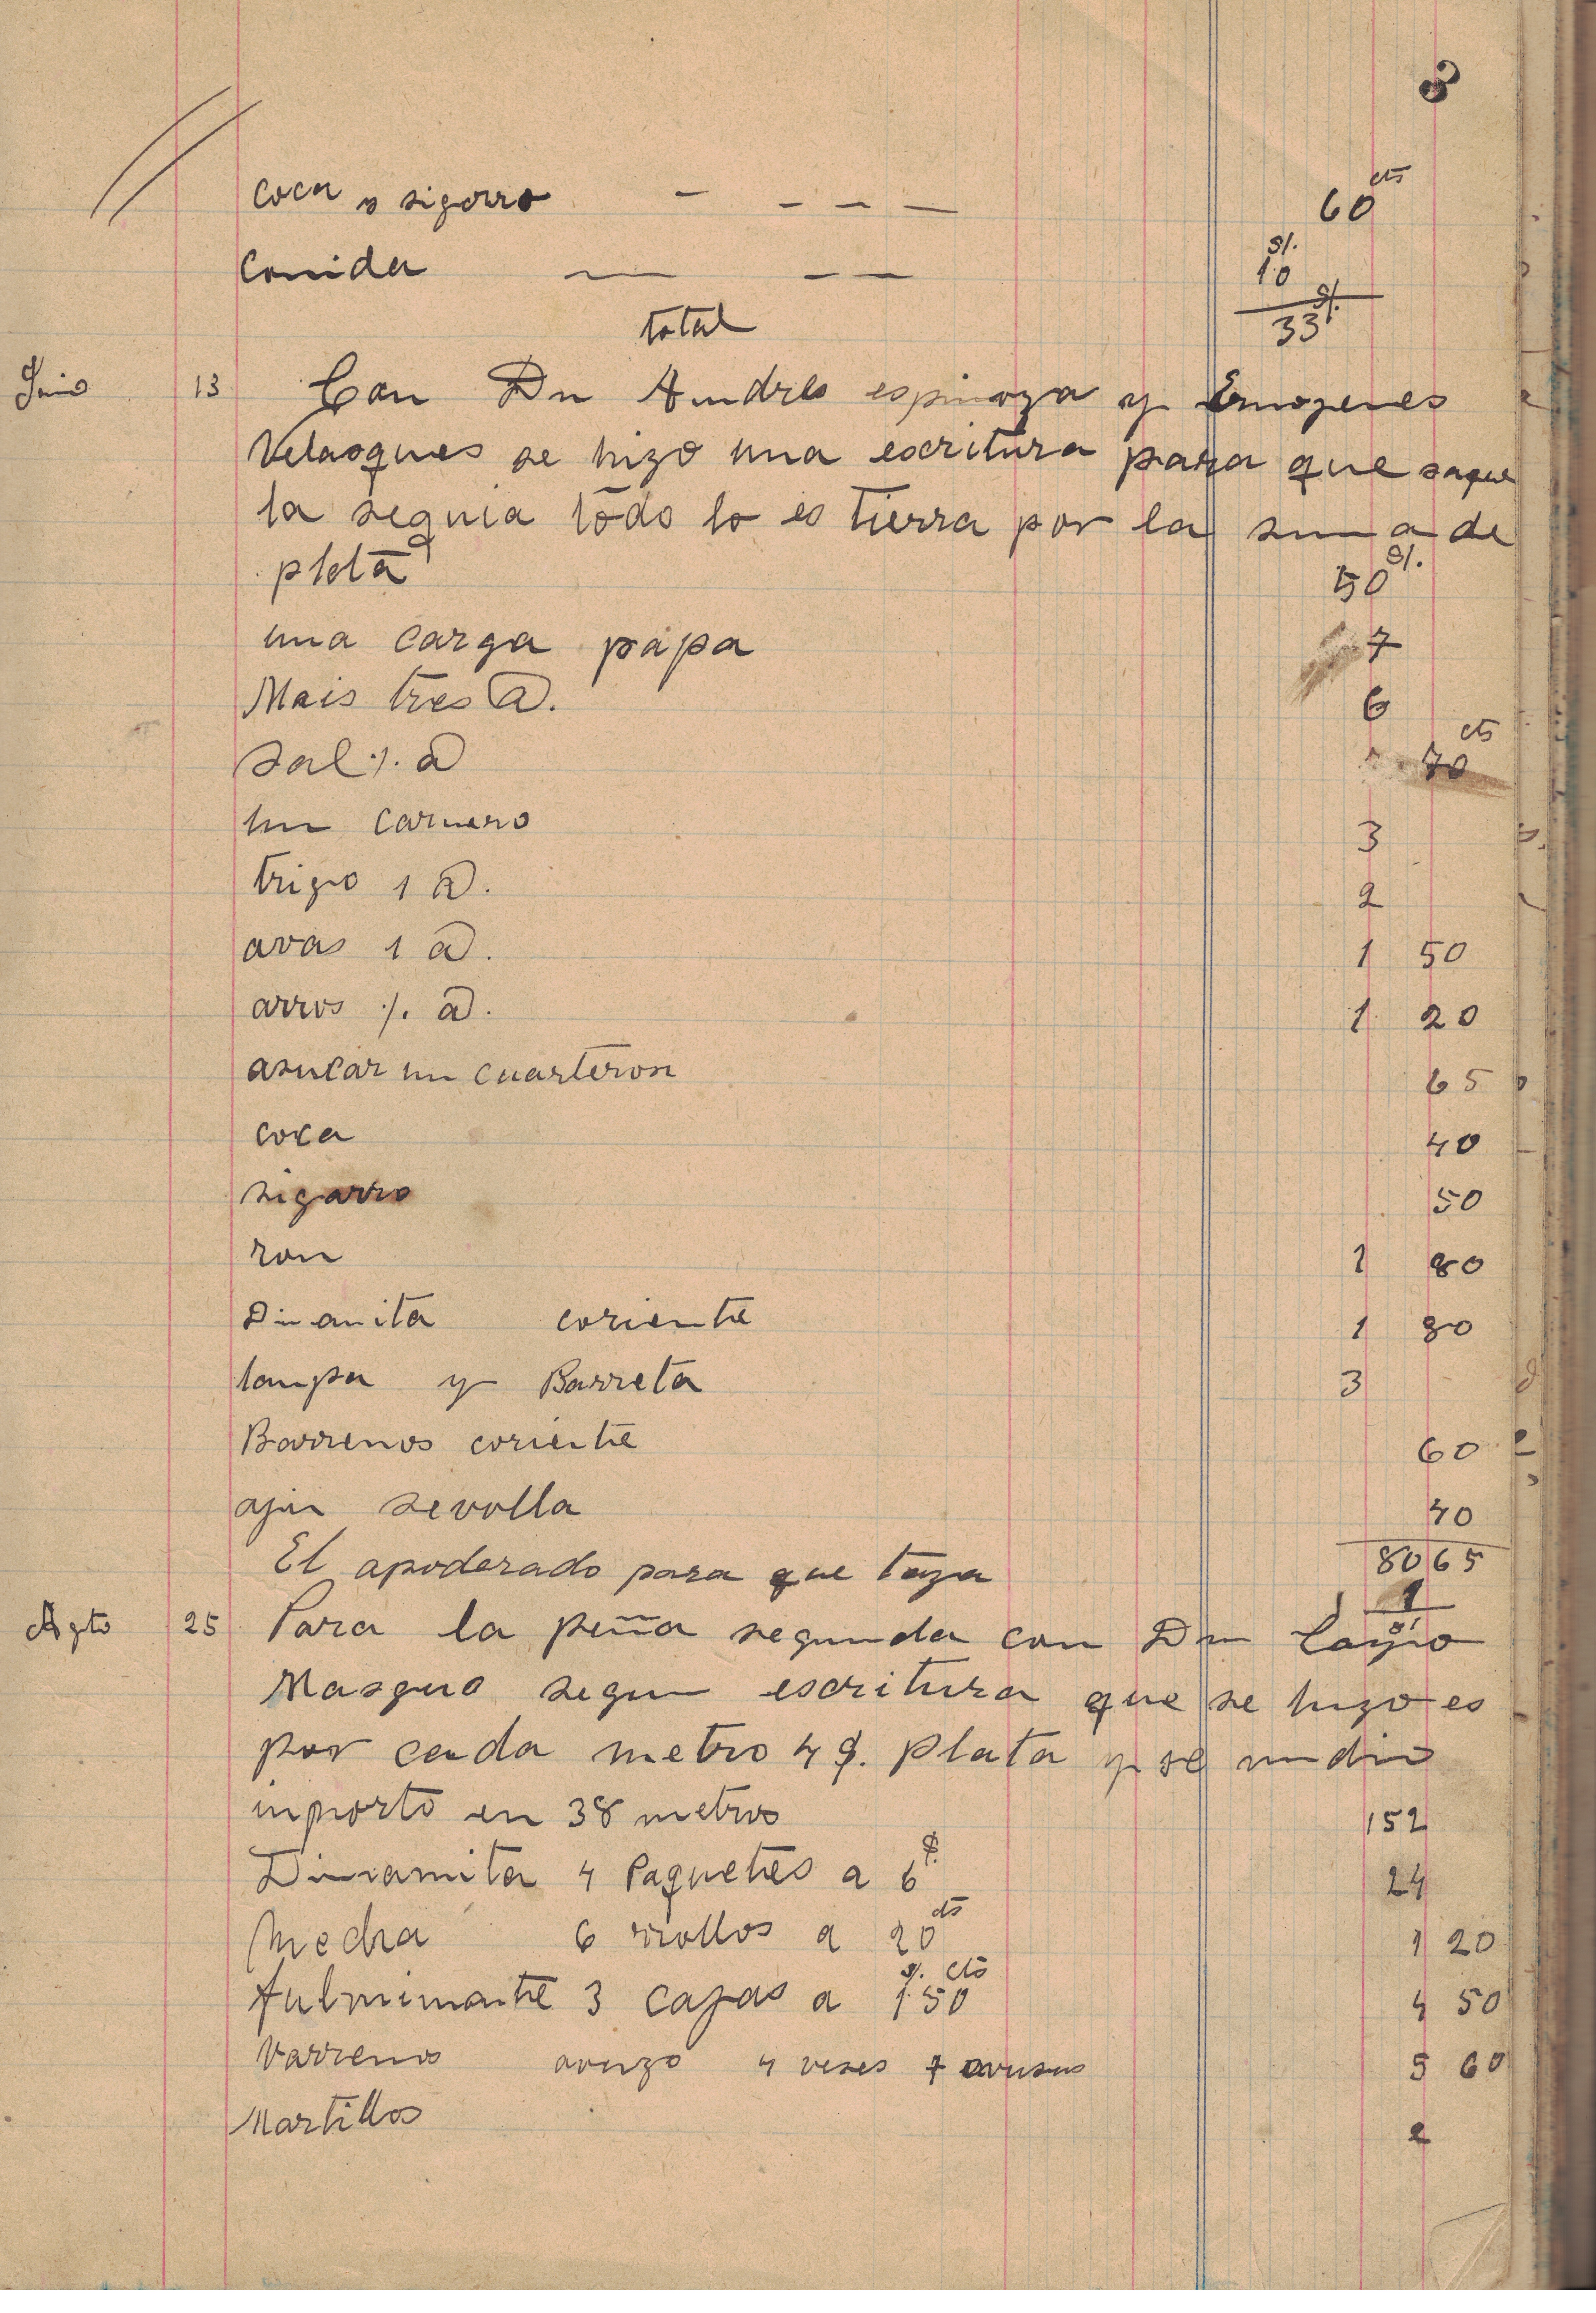 8
Coca y sigarro - - - - 60 cts
Comida - - - S/. 10
total 33 S/.
Junio 13 Con Dn Andres espinoza y Ermogenes
Velasques se hizo una escritura para que saque
la sequia todo lo es tierra por la suma de
plata 50 S/.
una carga papa 7
Mais tres @. 6
Sal ·/. @ 70 cts
un carnero 3
trigo 1 @. 2
avas 1 @. 1 50
arros ·/. @. 1 20
asucar un cuarteron 65
coca 40
sigarro 50
ron 1 80
Dinamita coriente 1 80
lampa y Barreta 3
Barrenos coriente 60
aji sevolla 40
80 65
El apoderado para que taza 1
Agto 25 Para la peña segunda con Dn
Masguo segun escritura que se hizo es
por cada metro 4 $. plata y se midio
inporto en 38 metros 152
Dinamita 4 Paquetes a 6 $. 24
Mecha 6 rrollos a 20 cts 1 20
fulminante 3 cajas a 1 $. 50 cts 4 50
Varreno 4 veses 5 60
Martillos 2